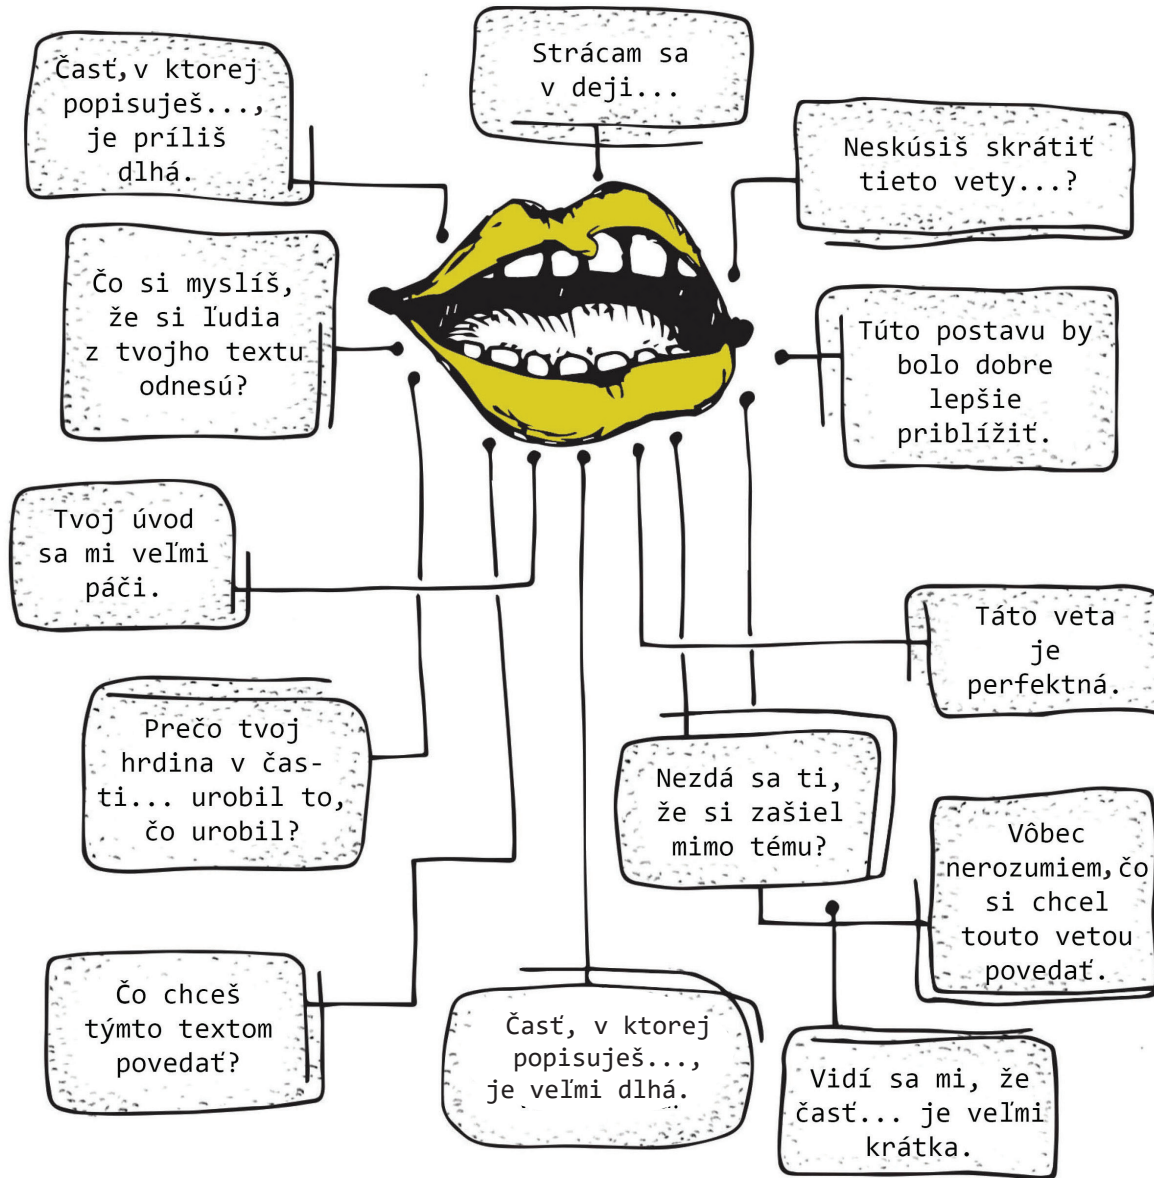 Časť, v ktorej
popisuješ...,
je príliš
dlhá.
Strácam sa
v deji...
Neskúsiš skrátiť
tieto vety...?
Čo si myslíš,
že si ľudia
z tvojho textu
odnesú?
Túto postavu by
bolo dobre
lepšie
priblížiť.
Tvoj úvod
sa mi veľmi
páči.
Táto veta
je
perfektná.
Prečo tvoj
hrdina v čas-
ti... urobil to,
čo urobil?
Nezdá sa ti,
že si zašiel
mimo tému?
Vôbec
nerozumiem, čo
si chcel
touto vetou
povedať.
Čo chceš
týmto textom
povedať?
Časť, v ktorej
popisuješ...,
je veľmi dlhá.
Vidí sa mi, že
časť... je veľmi
krátka.